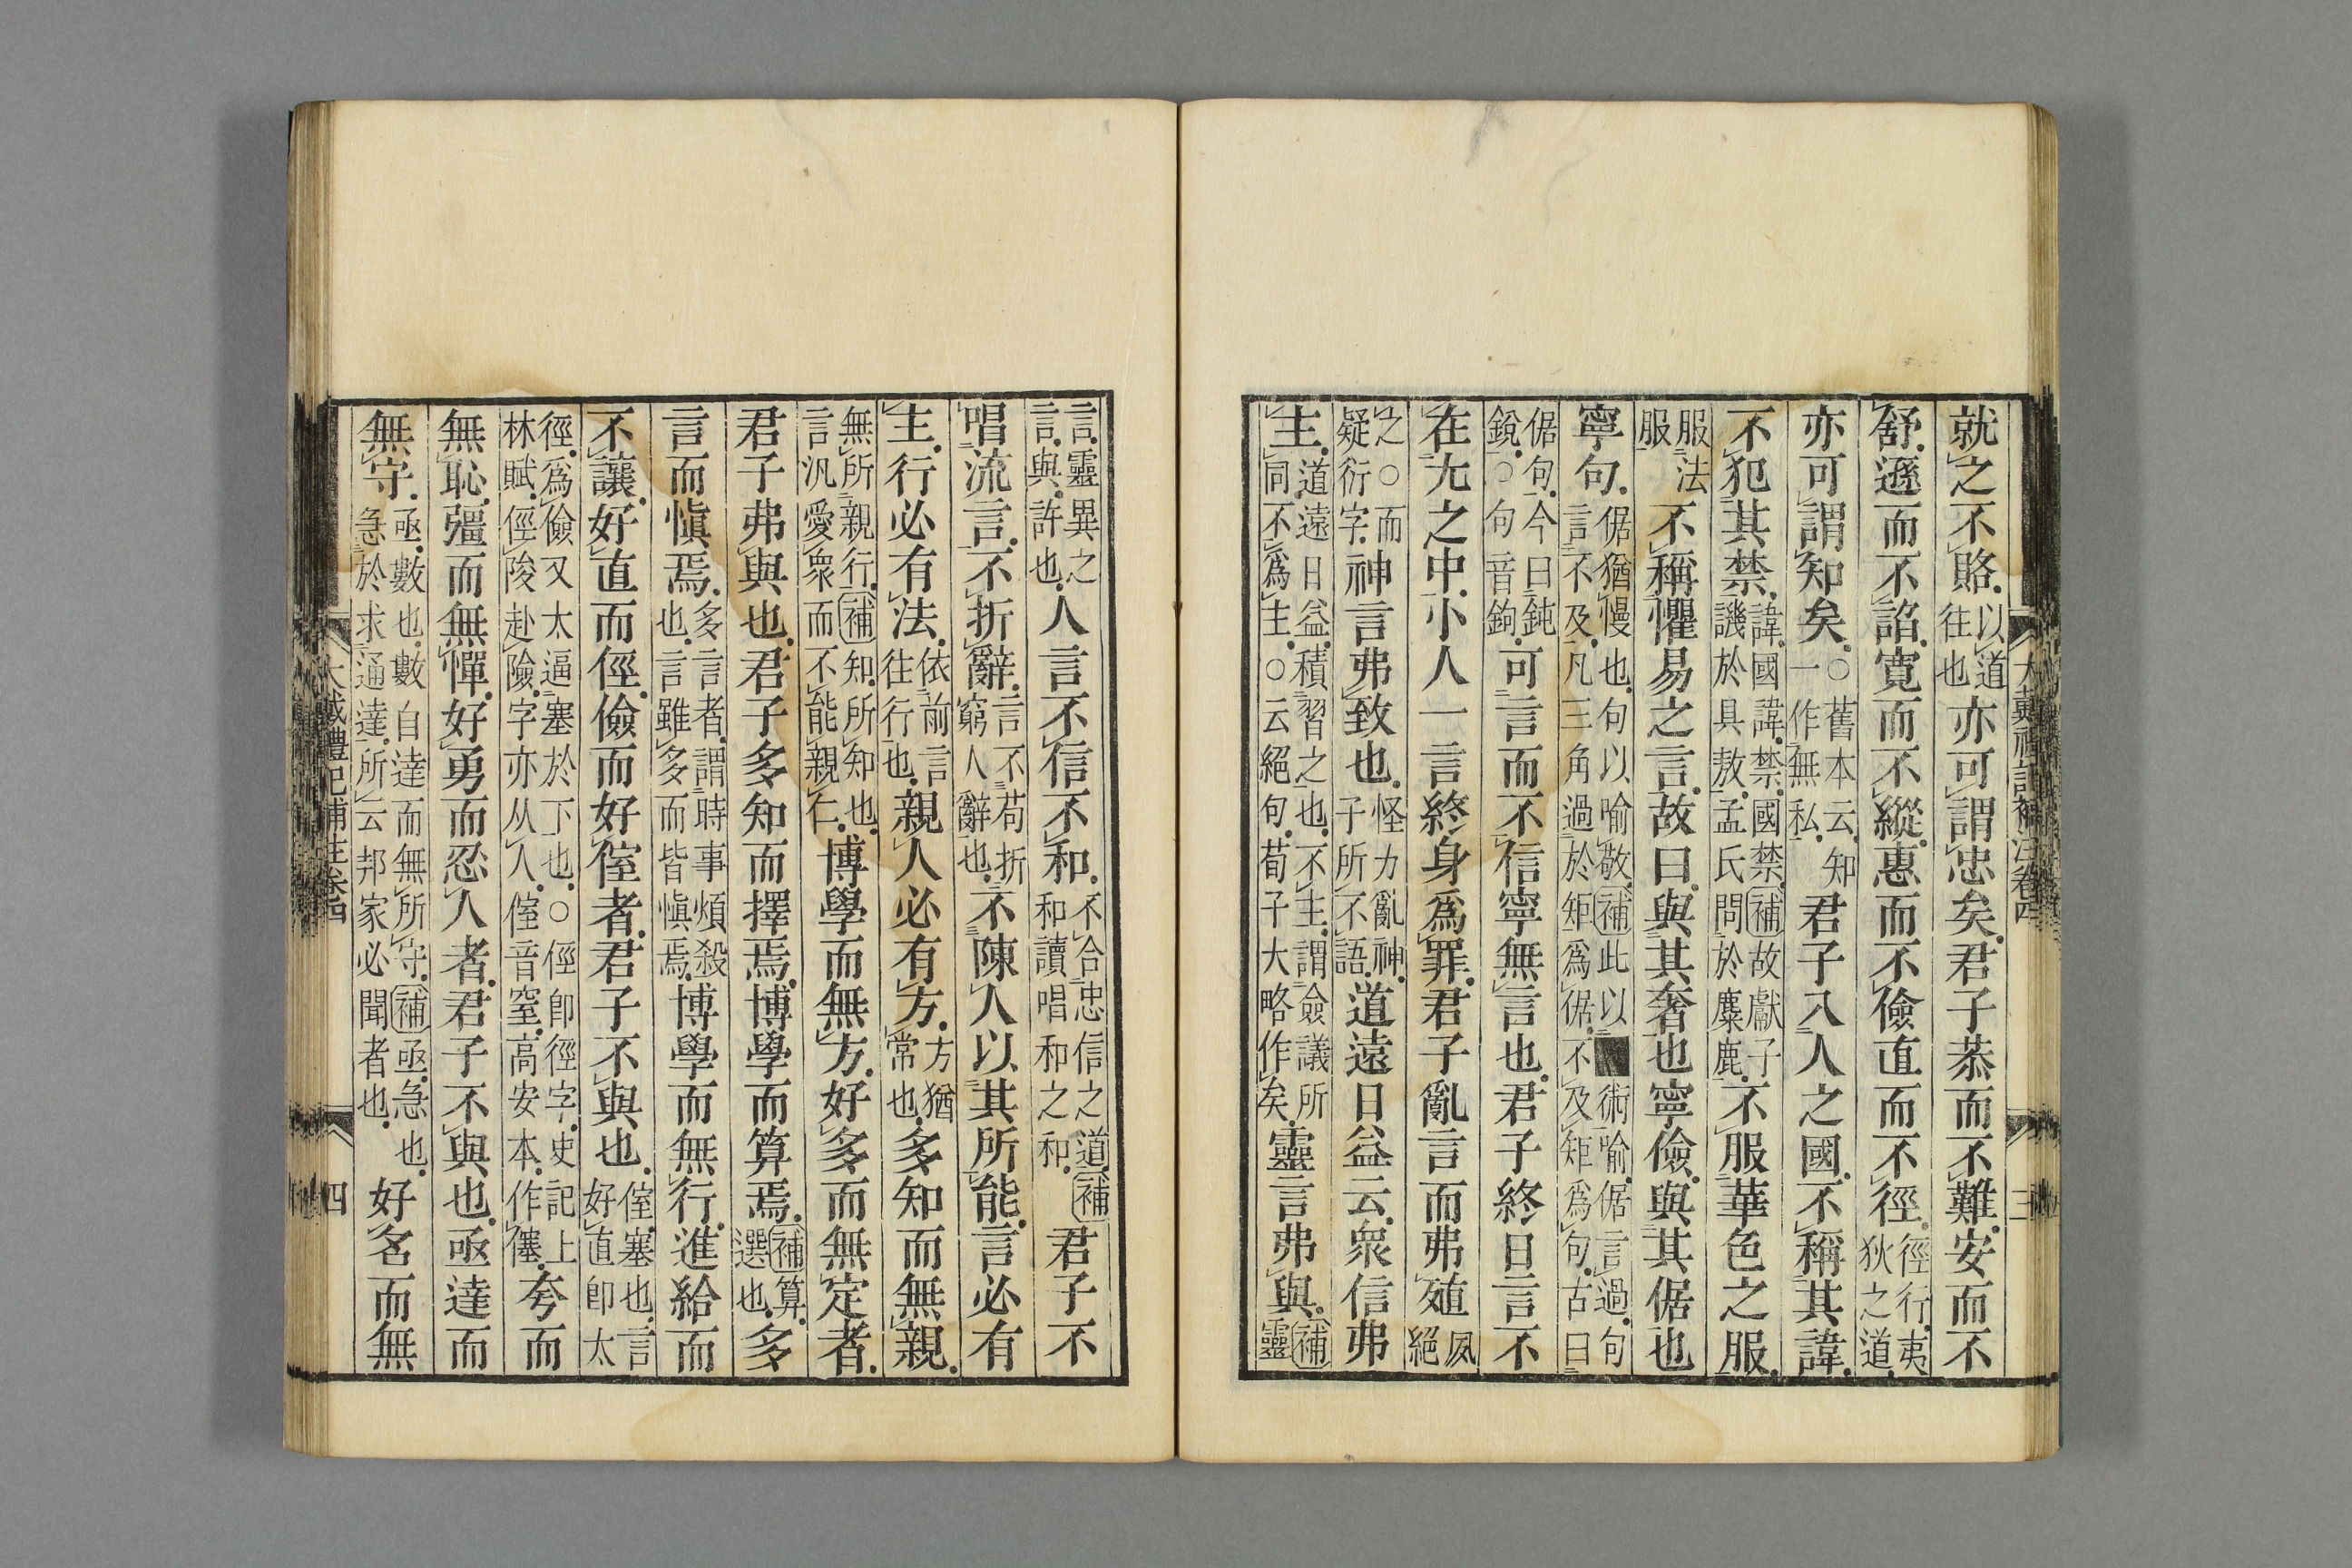 就之不賂以道往也亦可謂忠矣君子恭而不難安而不
舒遜而不諂寬而不縱惠而不儉直而不徑徑行夷狄之道
亦可謂知矣○舊本云知一作無私君子入人之國不稱其諱
不犯其禁諱國諱禁國禁補故獻子譏於具敖孟氏問於麋鹿不服華色之服
服法服不稱懼易之言故曰與其奢也寧儉與其倨也
寧句倨猶慢也句以喻敬補此以■術喻倨言過句言不及凡三角過於矩爲倨不及矩爲句古曰
倨句今曰鈍銳○句音鉤可言而不信寧無言也君子終日言不
在尤之中小人一言終身爲罪君子亂言而弗殖夙絕
之○而疑衍字神言弗致也怪力亂神子所不語道遠日益云衆信弗
主道遠日益積習之也不主謂僉議所同不爲主○云絕句荀子大略作矣靈言弗與補靈
大戴禮記補注卷四
三
言靈異之言與許也人言不信不和不合忠信之道補和讀唱和之和君子不
唱流言不折辭言不苟折窮人辭也不陳人以其所能言必有
主行必有法依前言往行也親人必有方方猶常也多知而無親
無所親行補知所知也言汎愛衆而不能親仁博學而無方好多而無定者
君子弗與也君子多知而擇焉博學而算焉補算選也多
言而愼焉多言者謂時事煩殺也言雖多而皆愼焉博學而無行進給而
不讓好直而俓儉而好𠊷者君子不與也𠊷塞也言好直卽太
徑爲儉又太逼塞於下也○俓卽徑字史記上林賦俓陖赴險字亦从人𠊷音窒高安本作僿夸而
無恥彊而無憚好勇而忍人者君子不與也亟達而
無守亟數也數自達而無所守補亟急也急於求通達所云邦家必聞者也好名而無
大戴禮記補注卷四
四